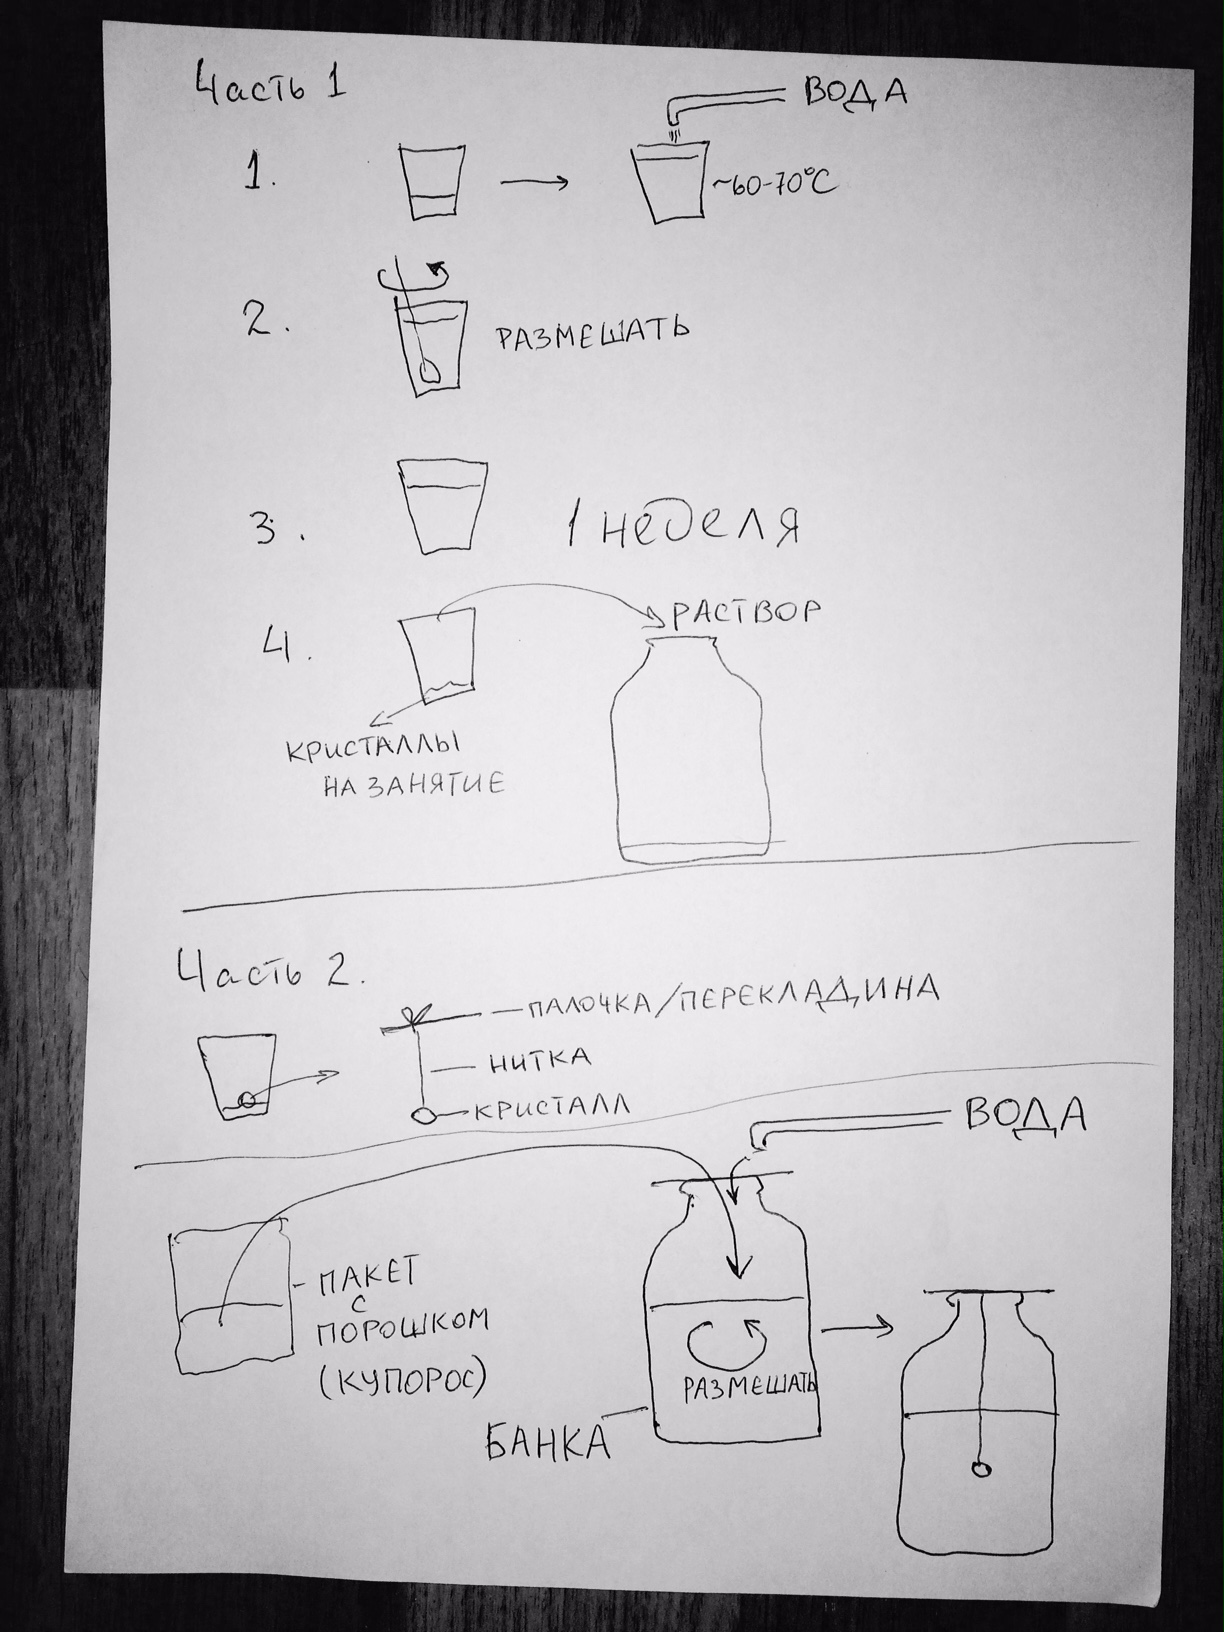 Часть 1
ВОДА
1.
~60-70°C
2.
РАЗМЕШАТЬ
3.
1 неделя
4.
РАСТВОР
КРИСТАЛЛЫ
НА ЗАНЯТИЕ
Часть 2.
ПАЛОЧКА/ПЕРЕКЛАДИНА
НИТКА
КРИСТАЛЛ
ВОДА
ПАКЕТ
С
ПОРОШКОМ
(КУПОРОС)
РАЗМЕШАТЬ
БАНКА